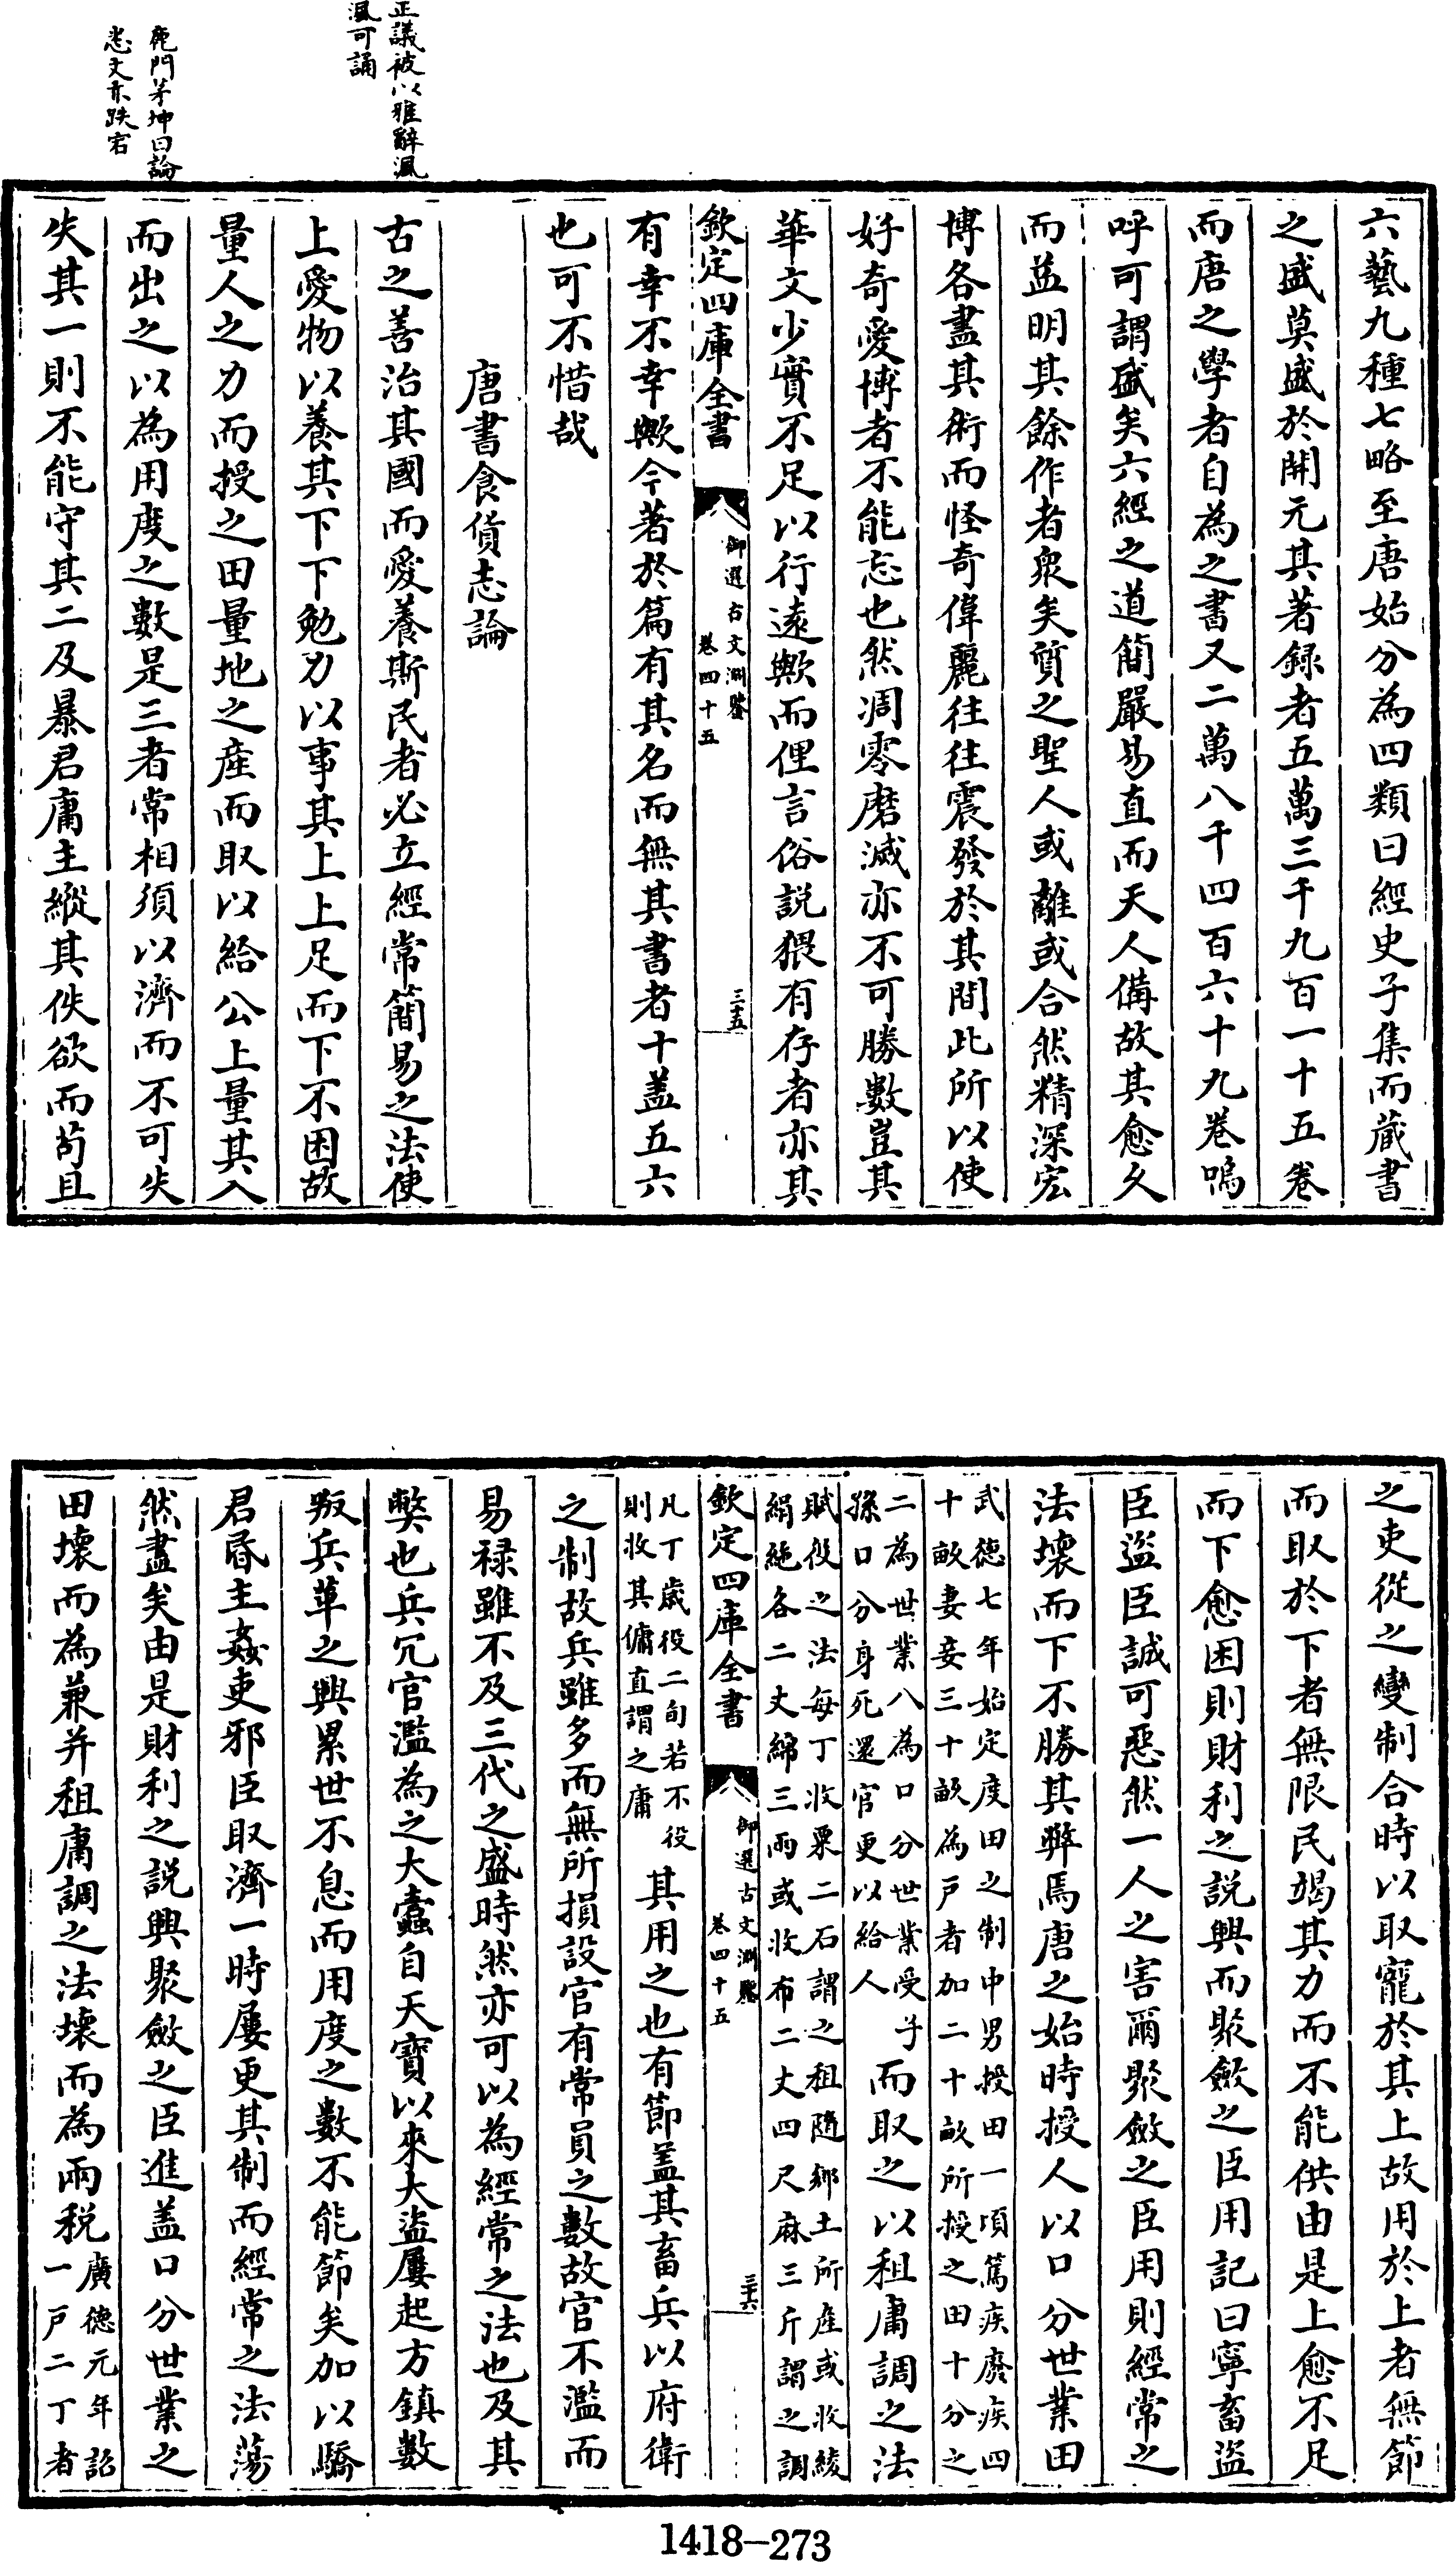 正議被以雅辭渢
渢可誦
鹿門茅坤曰論
悉文亦跌宕
六藝九種七略至唐始分為四類曰經史子集而藏書
之盛莫盛於開元其著録者五萬三千九百一十五卷
而唐之學者自為之書又二萬八千四百六十九卷嗚
呼可謂盛矣六經之道簡嚴易直而天人備故其愈久
而益明其餘作者衆矣質之聖人或離或合然精深宏
博各盡其術而怪奇偉麗往往震發於其間此所以使
好奇愛博者不能忘也然凋零磨滅亦不可勝數豈其
華文少實不足以行遠歟而俚言俗説猥有存者亦其
欽定四庫全書
御選古文淵鑒
卷四十五
三十五
有幸不幸歟今著於篇有其名而無其書者十盖五六
也可不惜哉
唐書食貨志論
古之善治其國而愛養斯民者必立經常簡易之法使
上愛物以養其下下勉力以事其上上足而下不困故
量人之力而授之田量地之産而取以給公上量其入
而出之以為用度之數是三者常相須以濟而不可失
失其一則不能守其二及暴君庸主縱其佚欲而苟且
之吏從之變制合時以取寵於其上故用於上者無節
而取於下者無限民竭其力而不能供由是上愈不足
而下愈困則財利之説興而聚斂之臣用記曰寧畜盜
臣盜臣誠可惡然一人之害爾聚斂之臣用則經常之
法壞而下不勝其弊焉唐之始時授人以口分世業田
武德七年始定度田之制中男授田一頃篤疾廢疾四
十畝妻妾三十畝為戸者加二十畝所授之田十分之
二為世業八為口分世業受子
孫口分身死還官更以給人
而取之以租庸調之法
賦役之法每丁收粟二石謂之租隨鄉土所產或收綾
絹絁各二丈綿三兩或收布二丈四尺麻三斤謂之調
欽定四庫全書
御選古文淵鑒
卷四十五
三十六
凡丁歲役二旬若不役
則收其傭直謂之庸
其用之也有節盖其畜兵以府衛
之制故兵雖多而無所損設官有常員之數故官不濫而
易禄雖不及三代之盛時然亦可以為經常之法也及其
弊也兵冗官濫為之大蠹自天寶以來大盜屢起方鎮數
叛兵革之興累世不息而用度之數不能節矣加以驕
君昏主姦吏邪臣取濟一時屢更其制而經常之法蕩
然盡矣由是財利之説興聚斂之臣進盖口分世業之
田壞而為兼并租庸調之法壞而為兩税
廣德元年詔
一戸二丁者
1418-273